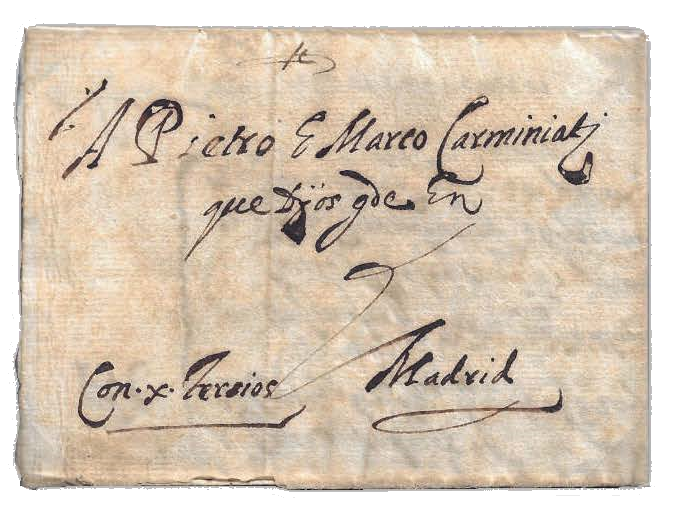 A Pietro E Marco Carminiatj
que Dÿos gde En
Con.x.tercios Madrid